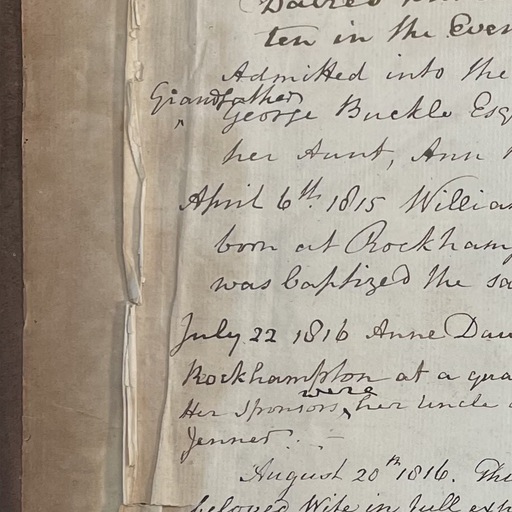 ten in the Even
Admitted into the
Grandfather
" George Buckle Esq
her Aunt, Ann
April 6th 1815 William
born at Rockhamp
was baptized the sa
July 22 1816 Anne Dau
Rockhampton at a qua
were
Her sponsors ^ her uncle
Jenner.
August 20th 1816. Th
beloved Wife in full exp